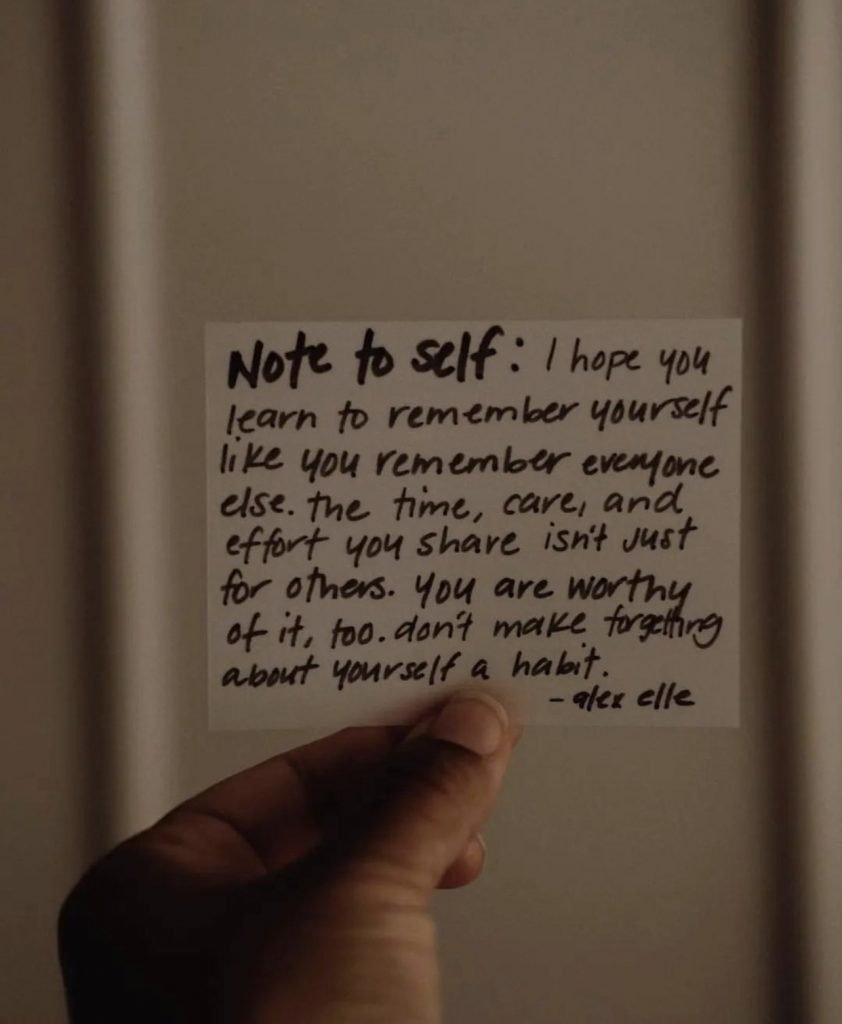 Note to self: I hope you
learn to remember yourself
like you remember everyone
else. the time, care, and
effort you share isn't just
for others. you are worthy
of it, too. don't make forgetting
about yourself a habit.
- alex elle